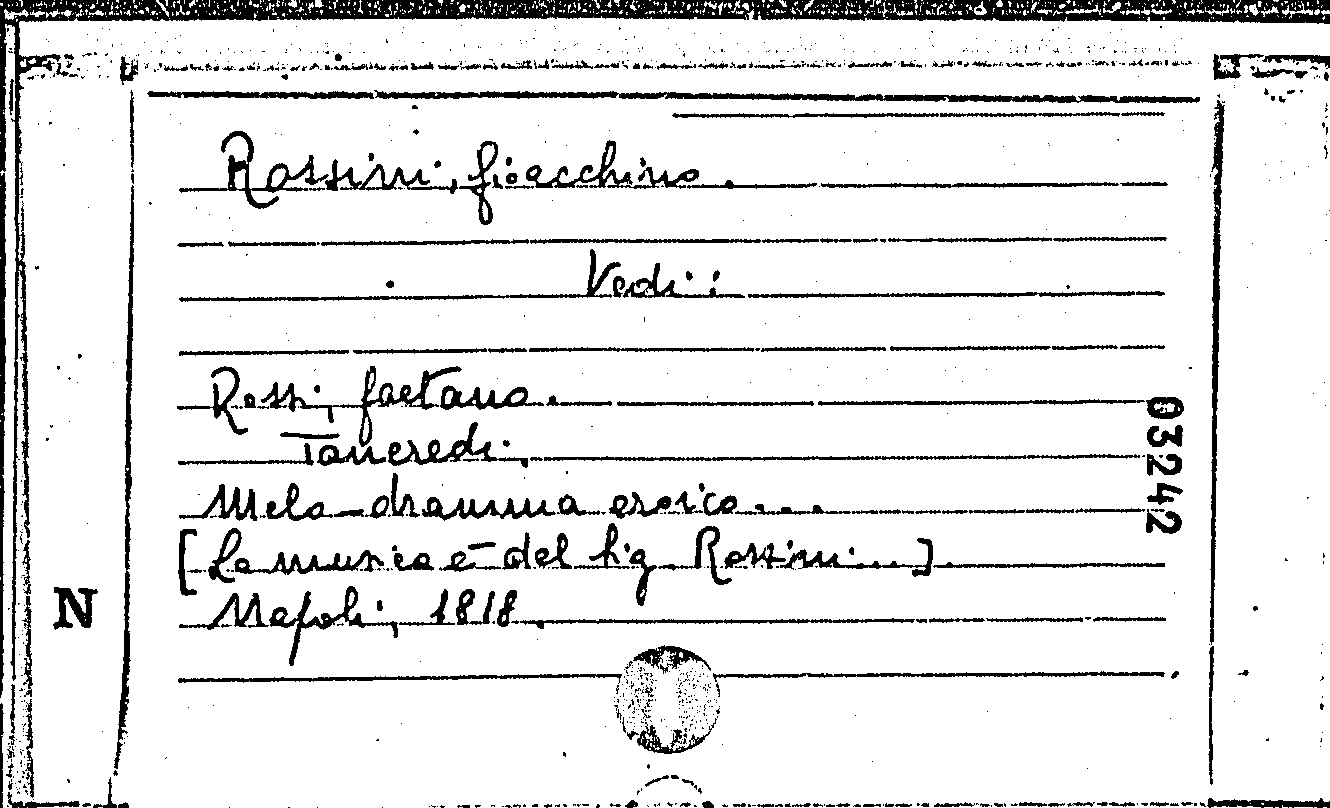 Rossini, Gioacchino.
Vedi:
Rossi, Gaetano.
Tancredi,
Melo-dramma eroico...
[La musica è del Sig. Rossini...].
Napoli, 1818.
03242
N